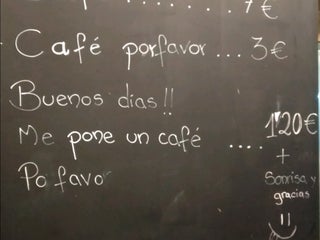 7€
Café porfavor ... 3€
Buenos dias!!
Me pone un café .... 1'20€
Po favo
+
Sonrisa y
gracias
=)